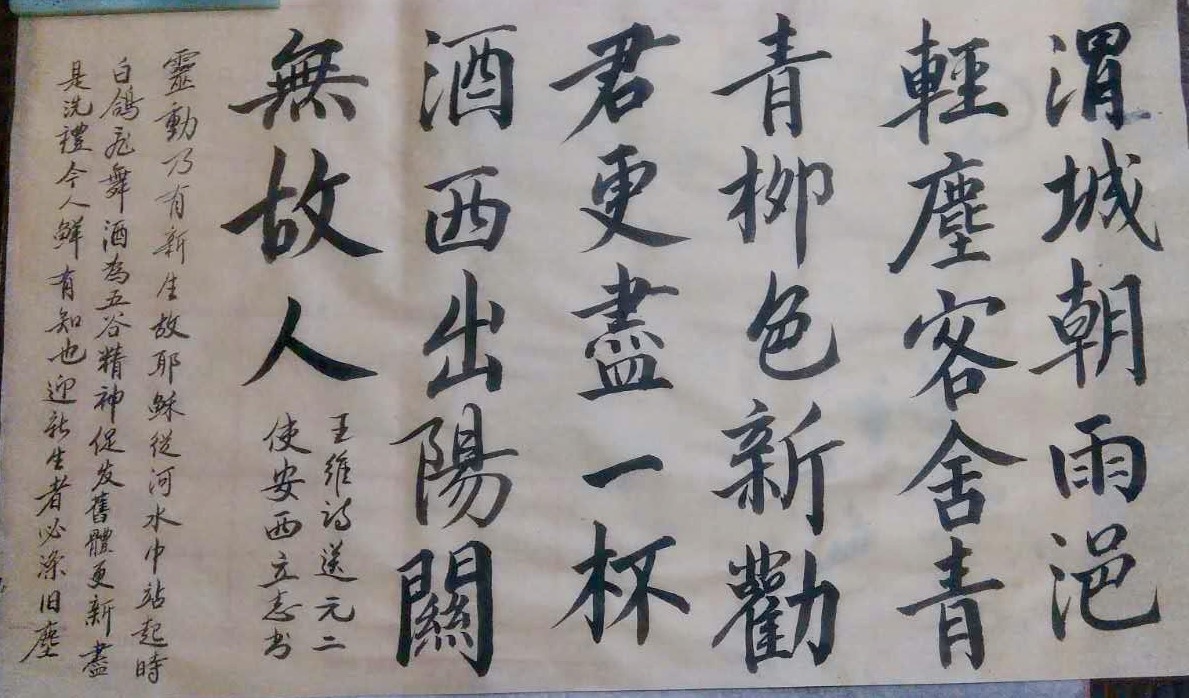 渭城朝雨浥
輕塵客舍青
青柳色新勸
君更盡一杯
酒西出陽關
無故人
王維詩送元二
使安西立志书
靈動乃有新生故耶穌從河水中站起時
白鴿飛舞酒為五谷精神促发舊體更新盡
是洗禮今人鮮有知也迎新生者必滌旧塵